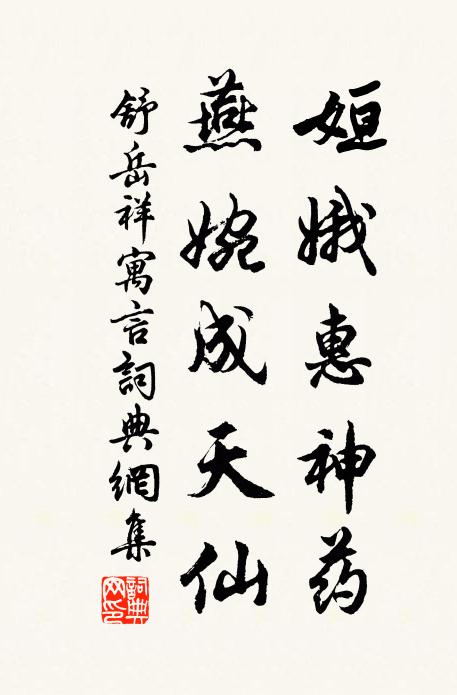 姮娥惠神药
燕婉成天仙
舒岳祥寓言詞典網集
詞典网印